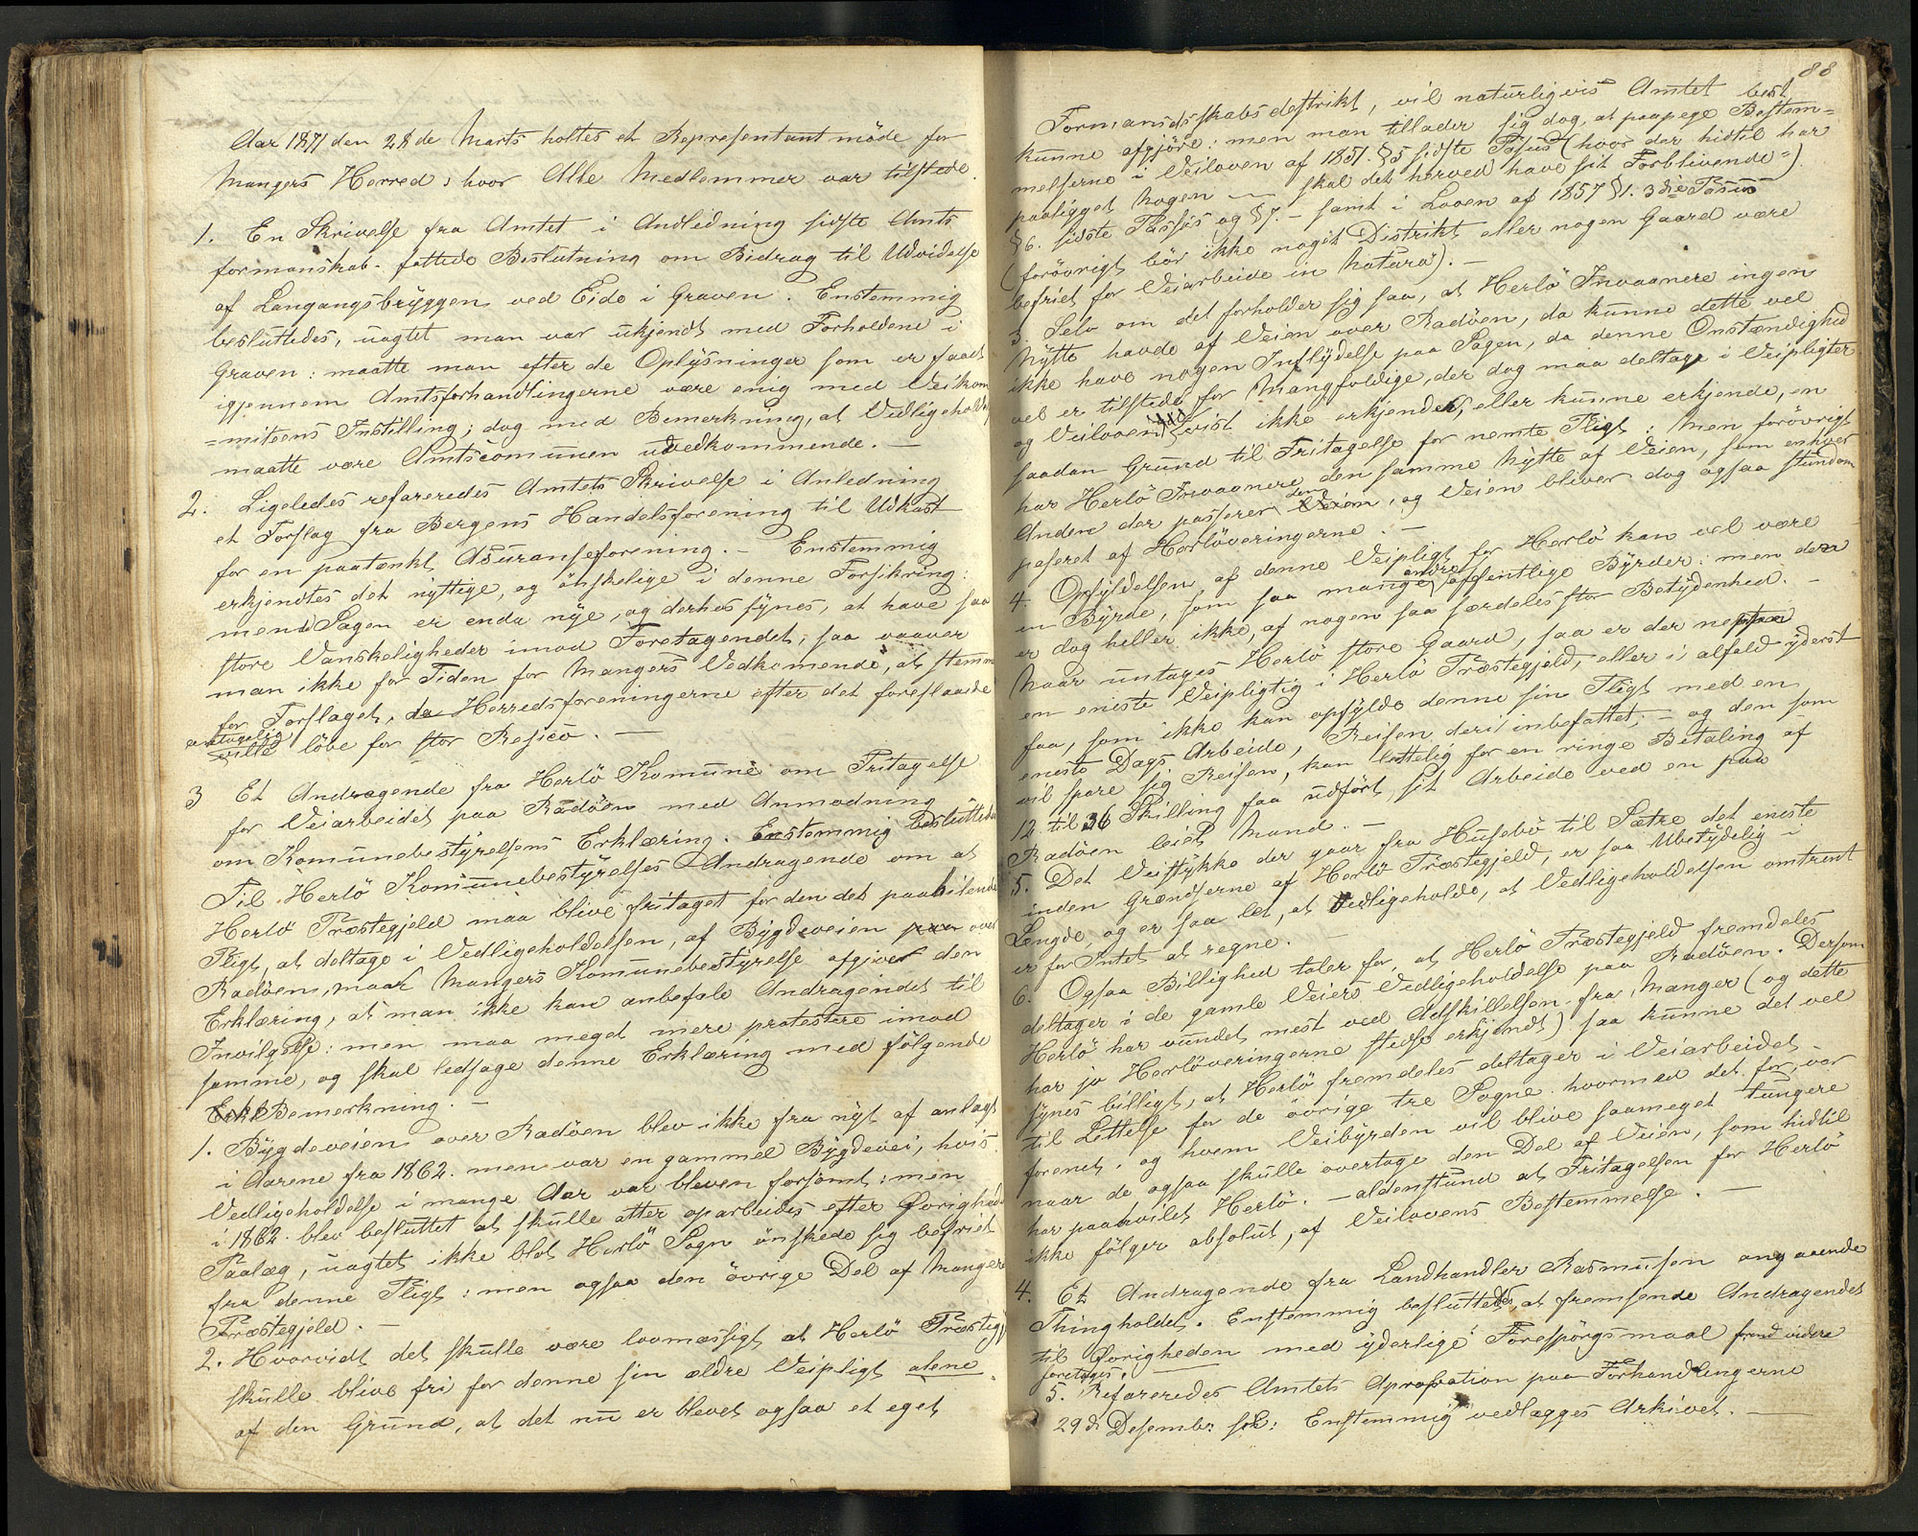 Aar 1871 den 28de Marts holtes et Representantmöde for
Mangers Herred; hvor Alle Medlemmer var tilstede.
1. En Skrivelse fra Amtet i Andledning sidste Amts
formanskab. fattede Beslutning om Bidrag til Udvidelse
af Langangsbryggen ved Eide i Graven. Enstemmig
besluttedes, uagtet man var ukjendt med Forholdene i
Graven: maatte man efter de Oplysninger som er faaet
igjennem Amtsforhandlingerne være enig med Veikom
=miteens Instilling; dog med Bemerkning, at Vedligeholdet,
maatte være Amtscomunen uvedkommende. —
2. Ligeledes refareredes Amtets Skrivelse i Anledning
et Forslag fra Bergens Handelsforening til Udkast
for en paatænkt Asuranseforening. — Enstemmig
erkjendtes det nyttige, og önskelige i denne Forsikring:
men Sagen er enda nye, og derhos synes, at have saa
store Vanskeligheder imod Foretagendet, saa vaaver
man ikke for Tiden for Mangers Vedkomende, at stemme
for Forslaget, da Herredsforeningerne efter det foreslaaede
antagelig
ville löbe for stor Resico. —
3 Et Andragende fra Herlö Komune om Fritagelse
for Veiarbeidet paa Radöen med Anmodning
om Komunebestyrelsens Erklæring. Enstemmig besluttedes
Til Herlö Komunebestyrelses Andragende om at
Herlö Præstegjeld maa blive fritaget for den det paahvilende
Pligt, at deltage i Vedligeholdelsen, af Bygdeveien paa over
Radöen, maa Mangers Komunebestyrelse afgiver den
Erklæring, at man ikke kan anbefale Andragendet til
Invilgelse: men maa meget mere protestere imod
samme, og skal ledsage denne Erklæring med fölgende
Erkl Bemerkning. —
1. Bygdeveien over Radöen blev ikke fra nyt af anlagt
i Aarene fra 1862. men var en gammel Bygdevei, hvis
Vedligeholdelse i mange Aar var bleven forsömt: men
i 1862. blev besluttet at skulle atter oparbeides efter Övrigheds
Paalæg, uagtet ikke blot Herlö Sogn önskede sig befriet
fra denne Pligt: men ogsaa den övrige Del af Manger
Præstegjeld. —
2. Hvorvidt det skulle være lovmæssigt at Herlö Præstegj
skulle blive fri for denne sin ældre Veipligt alene
af den Grund, at det nu er blevet ogsaa et eget
88
Formandsskabsdestrikt, vil naturligvis Amtet best
kunne afgjöre: men man tillader sig dog, at paapege Bestem=
melserne i Veiloven af 1851. §5 sidste Pasus (hvor der hidtil har
paaligget nogen — skal det herved have sit Forblivende=).
§6. sidste Passus og §7. — samt i Loven af 1857 §1. 3die Pasus
(forövrigt bör ikke noget Distrikt eller nogen Gaard være
befriet for Veiarbeide in natura). —
3. Selv om det forholder sig saa, at Herlö Invaanere ingen
Nytte havde af Veien over Radöen, da kunne dette vel
ikke have nogen Inflydelse paa Sagen, da denne Omstændighed
vel er tilstede for Mangfoldige, der dog maa deltage i Veipligter
og Veiloven vist ikke erkjender, eller kunne erkjende, en
saadan Grund til Fritagelse for nemte Pligt: Men forövrigt
har Herlö Invaanere den samme Nytte af Veien, som enhver
Anden der passerer den Veien, og Veien bliver dog ogsaa stundom
paseret af Herlöveringerne. —
4. Opfyldelsen af denne Veipligt for Herlö kan vel være
en Byrde, som saa mange andre offentlige Byrder: men den
er dog heller ikke, af nogen saa særdeles stor Betydenhed. —
Naar untages Herlö store Gaard, saa er der neppe
en eneste Veipligtig i Herlö Præstegjeld, eller i alfald yderst
faa, som ikke kan opfylde denne sin Pligt med en
eneste Dags Arbeide, Reisen deri inbefattet; — og den som
vil spare sig Reisen, kan lettelig for en ringe Betaling af
12 til 36 Skilling faa udfört sit Arbeide ved en paa
Radöen leiet Mand. —
5. Det Veistykke der gaar fra Husebö til Sætre det eneste
inden Grændserne af Herlö Præstegjeld, er saa Ubetydelig i
Længde, og er saa let, at Vedligeholde, at Vedligeholdelsen omtrent
er for Intet at regne. —
6. Ogsaa Billighed taler for, at Herlö Præstegjeld fremdeles
deltager i de gamle Veiers Vedligeholdelse paa Radöen. Dersom
Herlö har vundet mest ved Adskillelsen fra Manger (og dette
har jo Herlöveringerne stedse erkjendt) saa kunne det vel
synes billigt, at Herlö fremdeles deltager i Veiarbeidet
til Lettelse for de övrige tre Sogne. hvormed det for, var
forenet. og hvem Veibyrden vil blive saameget tungere
naar de ogsaa skulle overtage den Del af Veien, som hidtil
har paahvilet Herlö. — aldenstund at Fritagelsen for Herlö
ikke fölger absolut, af Veilovens Bestemmelse. —
4. Et Andragende fra Landhandler Rasmusen angaaende
Thingholdet. Enstemmig besluttedes, at fremsende Andragendet
til Övrigheden med yderlige Forespörgsmaal videre
foretages. —
5. Refareredes Amtets Aprobation paa Forhandlingerne
29 d. Desembr. : Enstemmig vedlægges Arkivet. —